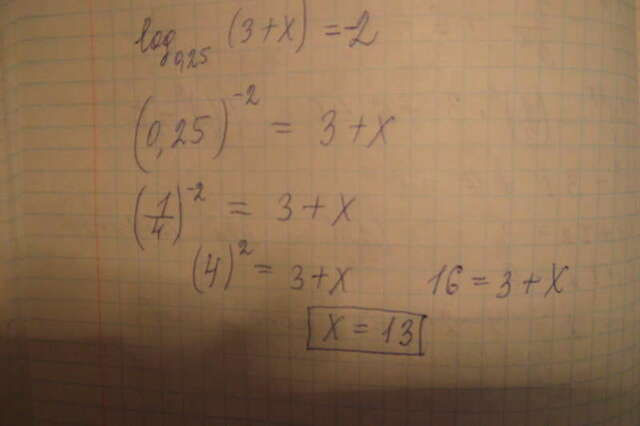 log₀,₂₅ (3+x) = -2
(0,25)⁻² = 3+x
(1/4)⁻² = 3+x
(4)² = 3+x 16 = 3+x
x = 13